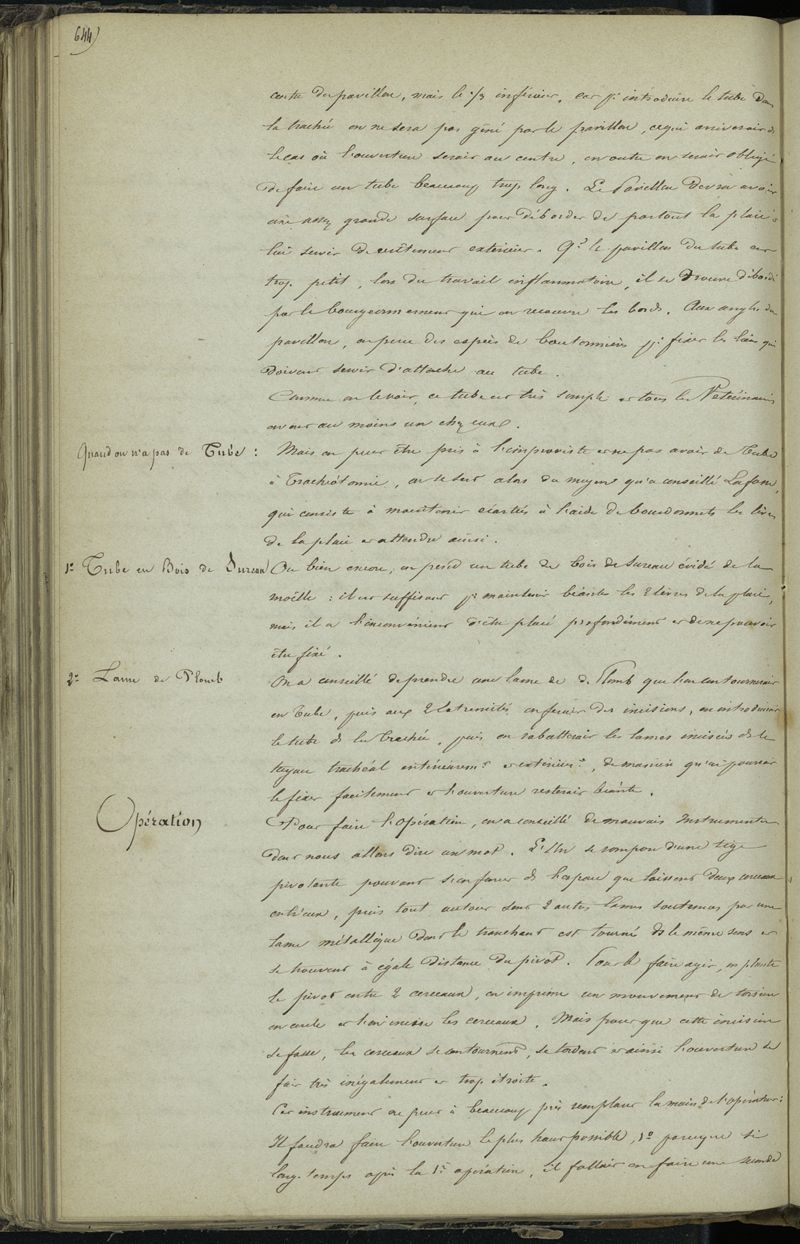 644)
centre du pavillon, mais le 1/3 inférieur, car pr introduire le tube dans
la trachée on ne sera pas gêné par le pavillon, ce qui arriverait ds
le cas où l'ouverture serait au centre, en outre on serait obligé
de faire un tube beaucoup trop long. Le Pavillon devra avoir
une assez grande surface pour déborder de partout la plaie &
lui servir de vêtement extérieur. Qd le pavillon du tube est
trop petit, lors du travail inflammatoire, il se trouve débordé
par le bourgeonnement qui en recouvre les bords. Aux angles du
pavillon, on perce des espèces de boutonnières pr fixer les liens qui
doivent servir d'attache au tube.
Comme on le voit, ce tube est très simple et tous les Vétérinaires
en ont au moins un chez eux.
Quand on n'a pas de Tube :
Mais on peut être pris à l'improviste et ne pas avoir de Tube
à Trachéotomie, on se sert alors du moyen qu'a conseillé Lafosse,
qui consiste à maintenir écartés à l'aide de bourdonnets les lèvres
de la plaie et attendre ainsi.
1º Tube en Bois de Sureau
Ou bien encore, on prend un tube de bois de sureau évidé de la
moëlle : il est suffisant pr maintenir béantes les 2 lèvres de la plaie,
mais il a l'inconvénient d'être placé profondément et de ne pouvoir
être fixé.
2º Lame de Plomb
On a conseillé de prendre une lame de Plomb que l'on contournerait
en Tube, puis aux 2 extrémités on ferait des incisions, on introduirait
le tube ds la trachée, puis on rabatterait les lames incisées ds le
tuyau trachéal intérieuremt et extérieurt, de manière qu'on pourrait
le fixer facilement et l'ouverture resterait béante.
Opération
Pour faire l'opération, on a conseillé de mauvais Instruments
dont nous allons dire un mot. L'Un se compose d'une tige
pivotante pouvant s'enfoncer ds l'espace que laissent deux cerceaux
entr'eux, puis tout autour sont 2 autres lames soutenues par une
lame métallique dont le tranchant est tourné ds le même sens et
se trouvent à égale distance du pivot. Pour le faire agir, on plante
le pivot entre 2 cerceaux, on imprime un mouvement de torsion
en cercle et l'on incise les cerceaux. Mais pour que cette incision
se fasse, les cerceaux se contournent, se tordent et ainsi l'ouverture se
fait très inégalement et trop étroite.
Cet instrument ne peut à beaucoup près remplacer la main de l'opérateur :
Il faudra faire l'ouverture le plus haut possible, 1º parceque si
long-temps après la 1re opération, il fallait en faire une seconde